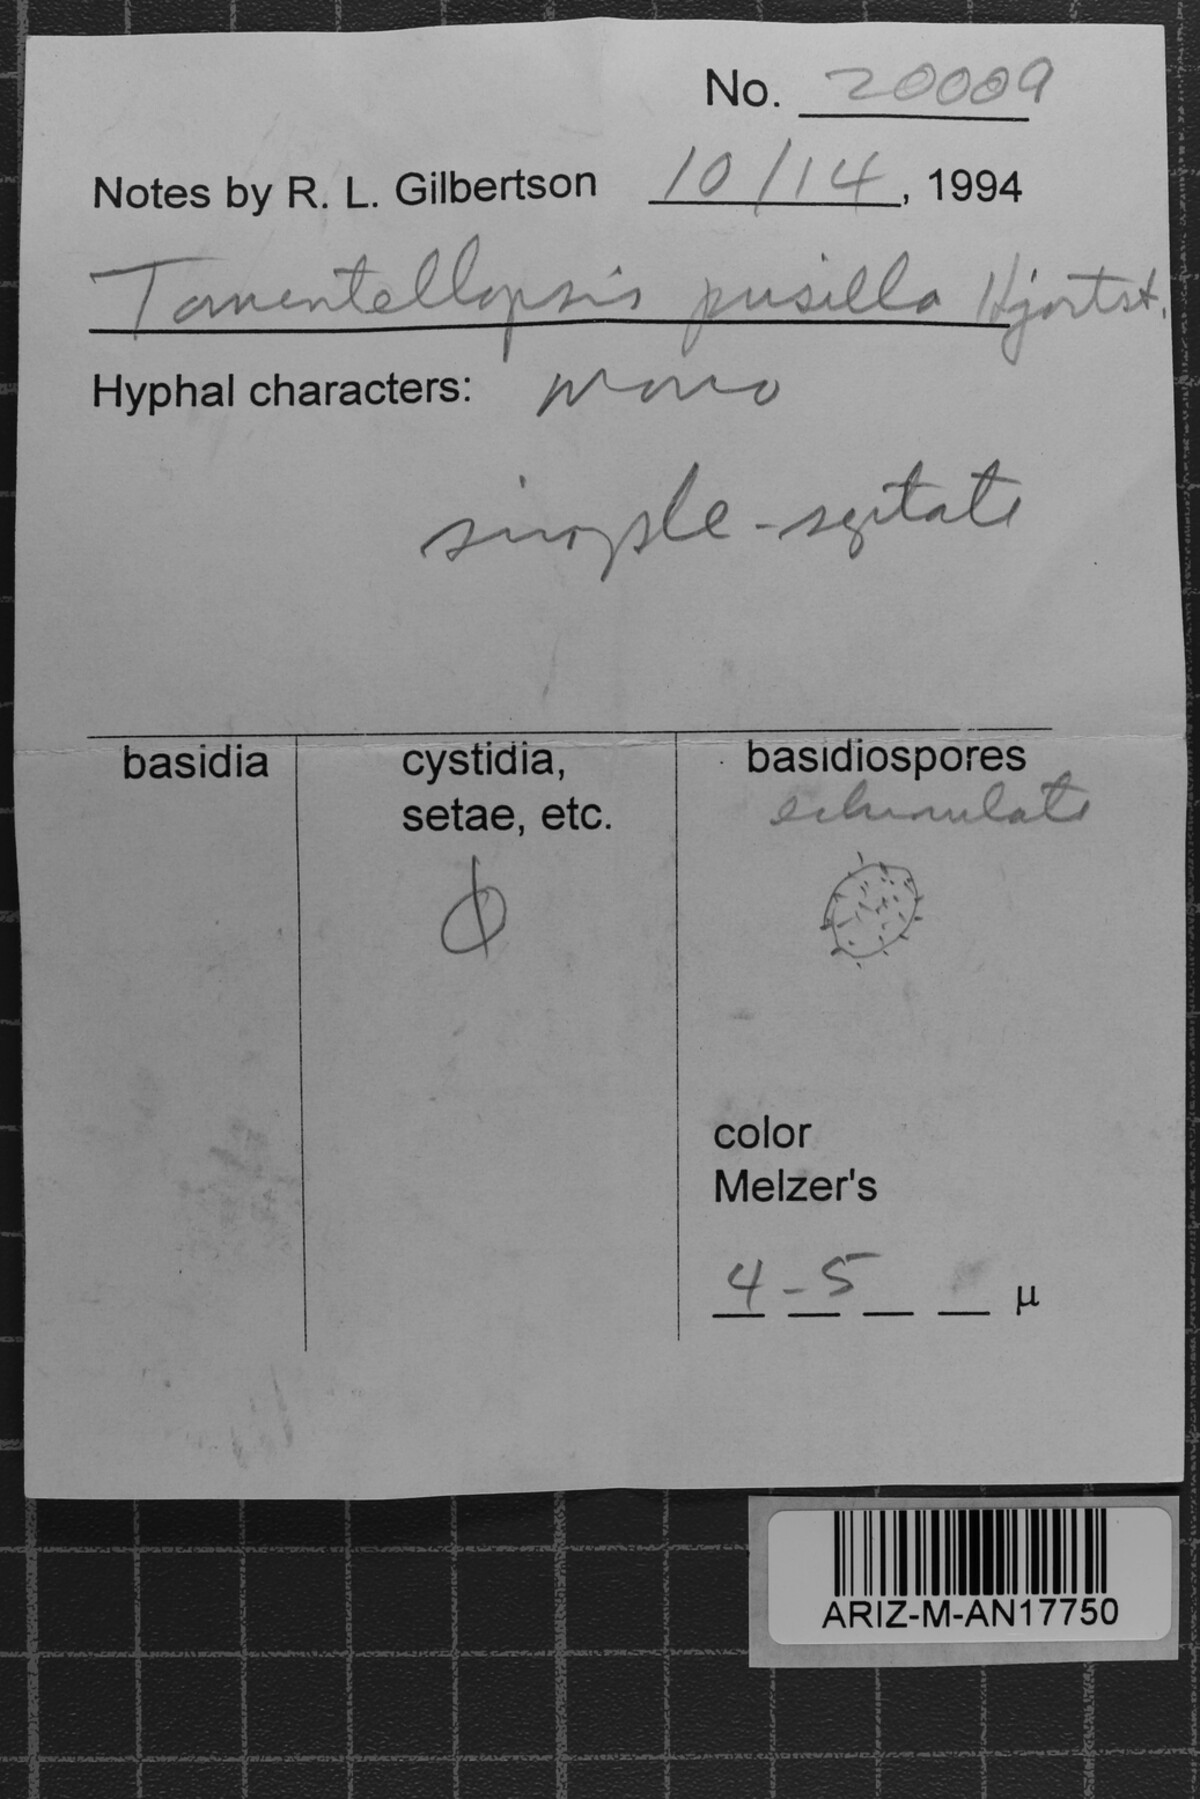 No. 20009
Notes by R. L. Gilbertson 10/14, 1994
Tomentellopsis pusilla Hjortst.
Hyphal characters: mono
simple-septate
basidia
cystidia,
setae, etc.
basidiospores
echinulate
color
Melzer's
4-5 µ
ARIZ-M-AN17750